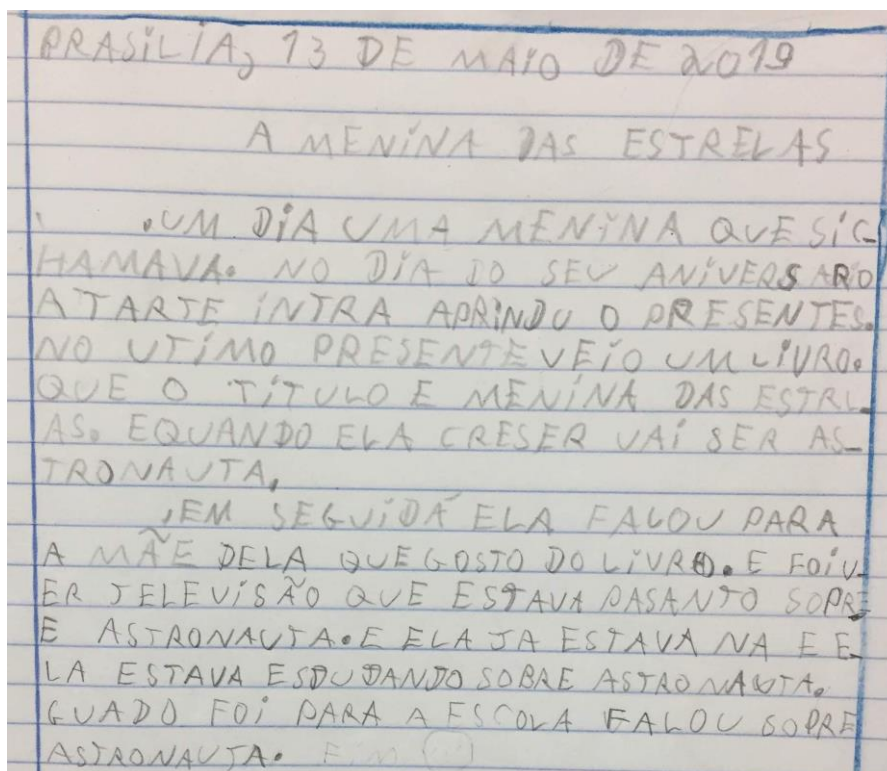 PRASÍLIA, 13 DE MAIO DE 2019
A MENINA DAS ESTRELAS
.UM DIA UMA MENINA QUE SIC-
HAMAVA. NO DIA DO SEU ANIVERSARO
A TARTE INTRA APRINDU O PRESENTES.
NO UTIMO PRESENTE VEIO UM LIVRO.
QUE O TITULO E MENINA DAS ESTRL-
AS. EQUANDO ELA CRESER VAI SER AS-
TRONAUTA.
.EM SEGUIDA ELA FALOU PARA
A MÃE DELA QUE GOSTO DO LIVRO. E FOI V-
ER TELEVISÃO QUE ESTAVA PASANTO SOPRE
E ASTRONAUTA. E ELA JA ESTAVA NA E E-
LA ESTAVA ESDUDANDO SOBRE ASTRONAUTA.
GUADO FOI PARA A ESCOLA FALOU SOPRE
ASTRONAUTA. FIM